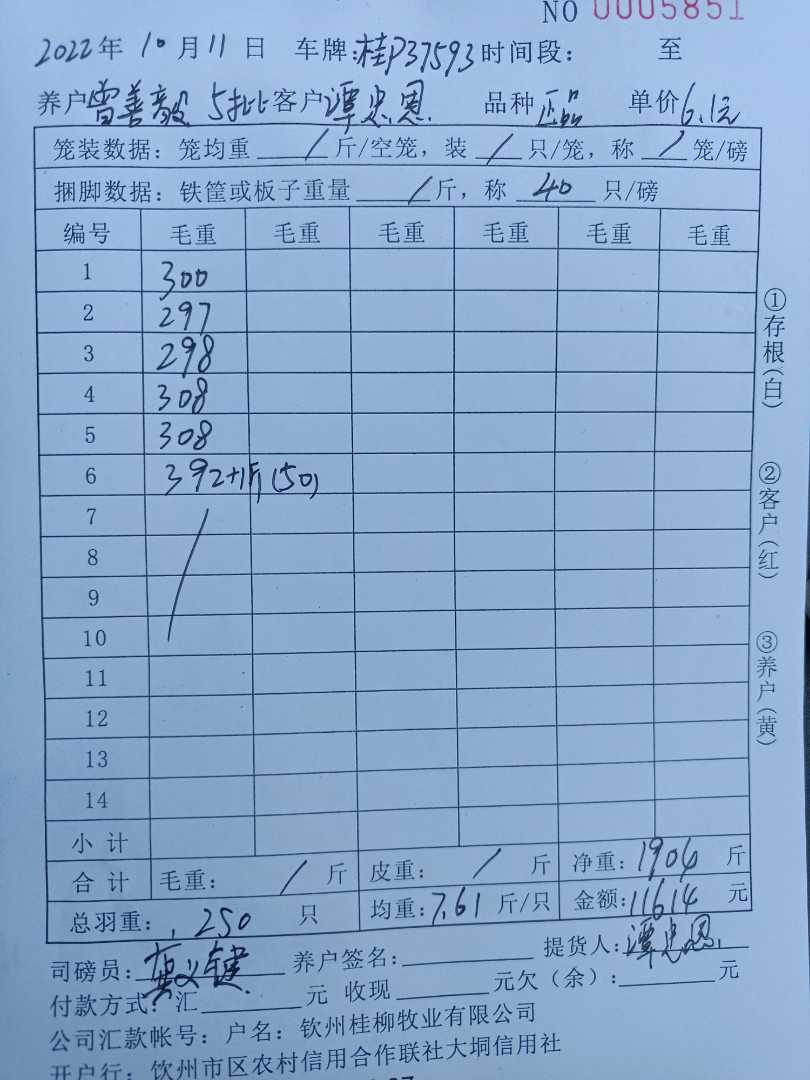 NO 0005851
2022年 10月11日 车牌:桂P37593 时间段: 至
养户曾善毅 5批 客户谭忠恩 品种 正品 单价6.1元
笼装数据: 笼均重 / 斤/空笼, 装 / 只/笼, 称 / 笼/磅
捆脚数据: 铁筐或板子重量 / 斤, 称 40 只/磅
编号 毛重 毛重 毛重 毛重 毛重 毛重
1 300
2 297
3 298
4 308
5 308
6 392+1斤(50)
7
8
9
10
11
12
13
14
小计
合计 毛重: / 斤 皮重: / 斤 净重: 1904 斤
总羽重: 250 只 均重: 7.61 斤/只 金额: 11614 元
司磅员: 养户签名: 提货人: 谭忠恩
付款方式: 汇 元 收现 元欠(余): 元
公司汇款帐号: 户名: 钦州桂柳牧业有限公司
开户行: 钦州市区农村信用合作联社大垌信用社
①存根(白)
②客户(红)
③养户(黄)